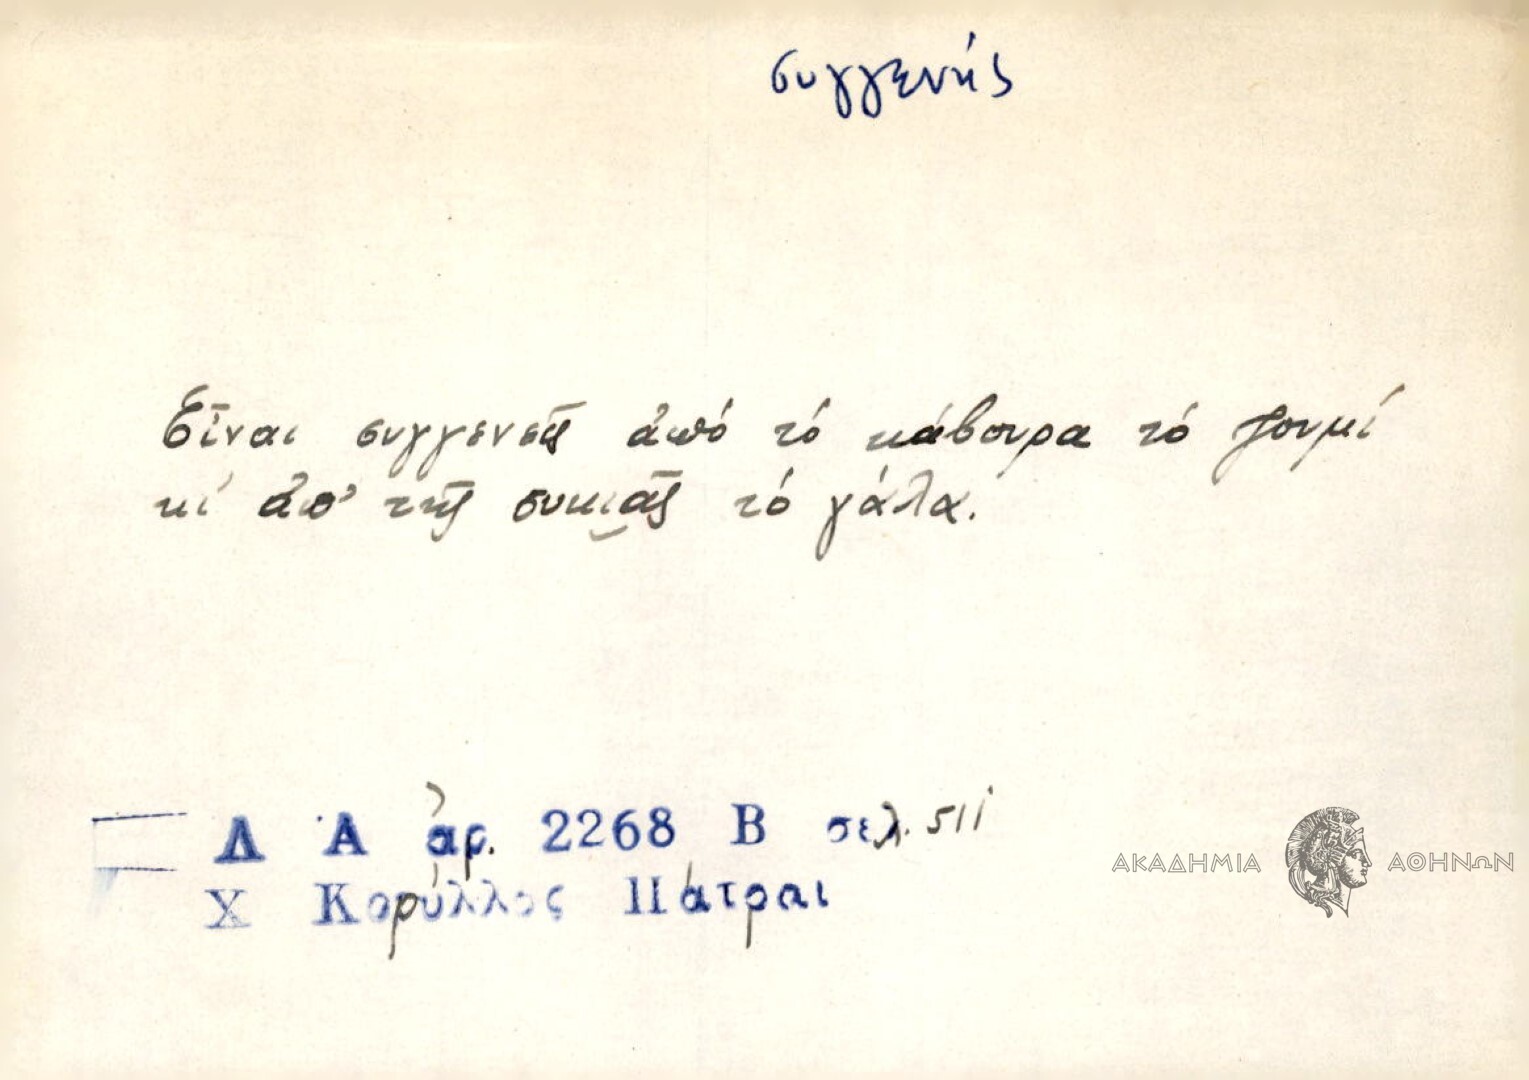 συγγενής
Εἶναι συγγενεῖς ἀπό τό κάβουρα τό ζουμί
κι ἀπ' τῆς συκιᾶς τό γάλα.
Λ Α ἀρ. 2268 Β σελ. 511
Χ Κορύλλος Πάτραι
ΑΚΑΔΗΜΙΑ ΑΘΗΝΩΝ